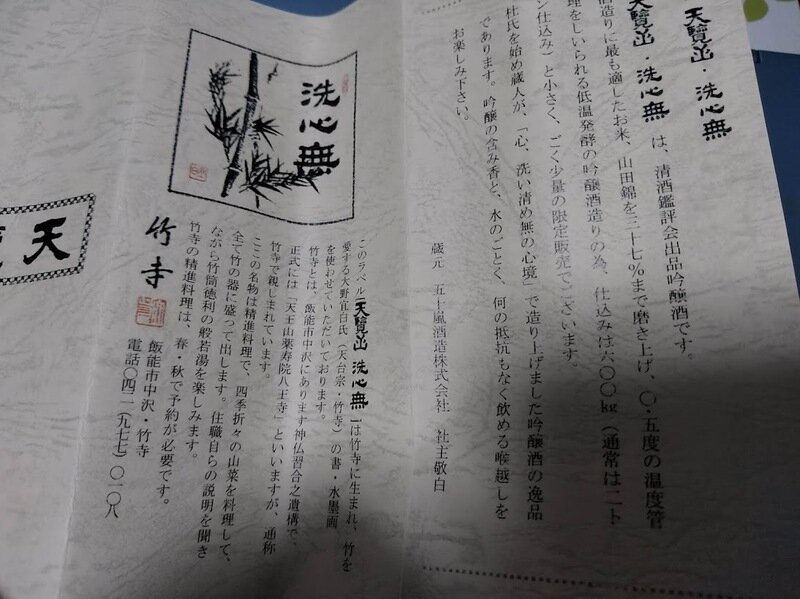 天覽山・洗心無
天覽山・洗心無 は、清酒鑑評会出品吟醸酒です。
酒造りに最も適したお米、山田錦を三十七%まで磨き上げ、〇・五度の温度管
理をしいられる低温発酵の吟醸酒造りの為、仕込みは六〇〇kg(通常は二ト
ン仕込み)と小さく、ごく少量の限定販売でございます。
杜氏を始め蔵人が、「心、洗い清め無の心境」で造り上げました吟醸酒の逸品
であります。吟醸の含み香と、水のごとく、何の抵抗もなく飲める喉越しを
お楽しみ下さい。
蔵元 五十嵐酒造株式会社 社主敬白
洗心無
このラベル「天覽山 洗心無」は竹寺に生まれ、竹を
愛する大野宜白氏(天台宗・竹寺)の書・水墨画
を使わせていただいております。
竹寺とは、飯能市中沢にあります神仏習合之遺構で、
正式には「天王山薬寿院八王寺」といいますが、通称
竹寺で親しまれています。
ここの名物は精進料理で、四季折々の山菜を料理して、
全て竹の器に盛って出します。住職自らの説明を聞き
ながら竹筒徳利の般若湯を楽しみます。
竹寺の精進料理は、春・秋で予約が必要です。
飯能市中沢・竹寺
電話〇四二(九七七)〇一〇八
竹寺
天